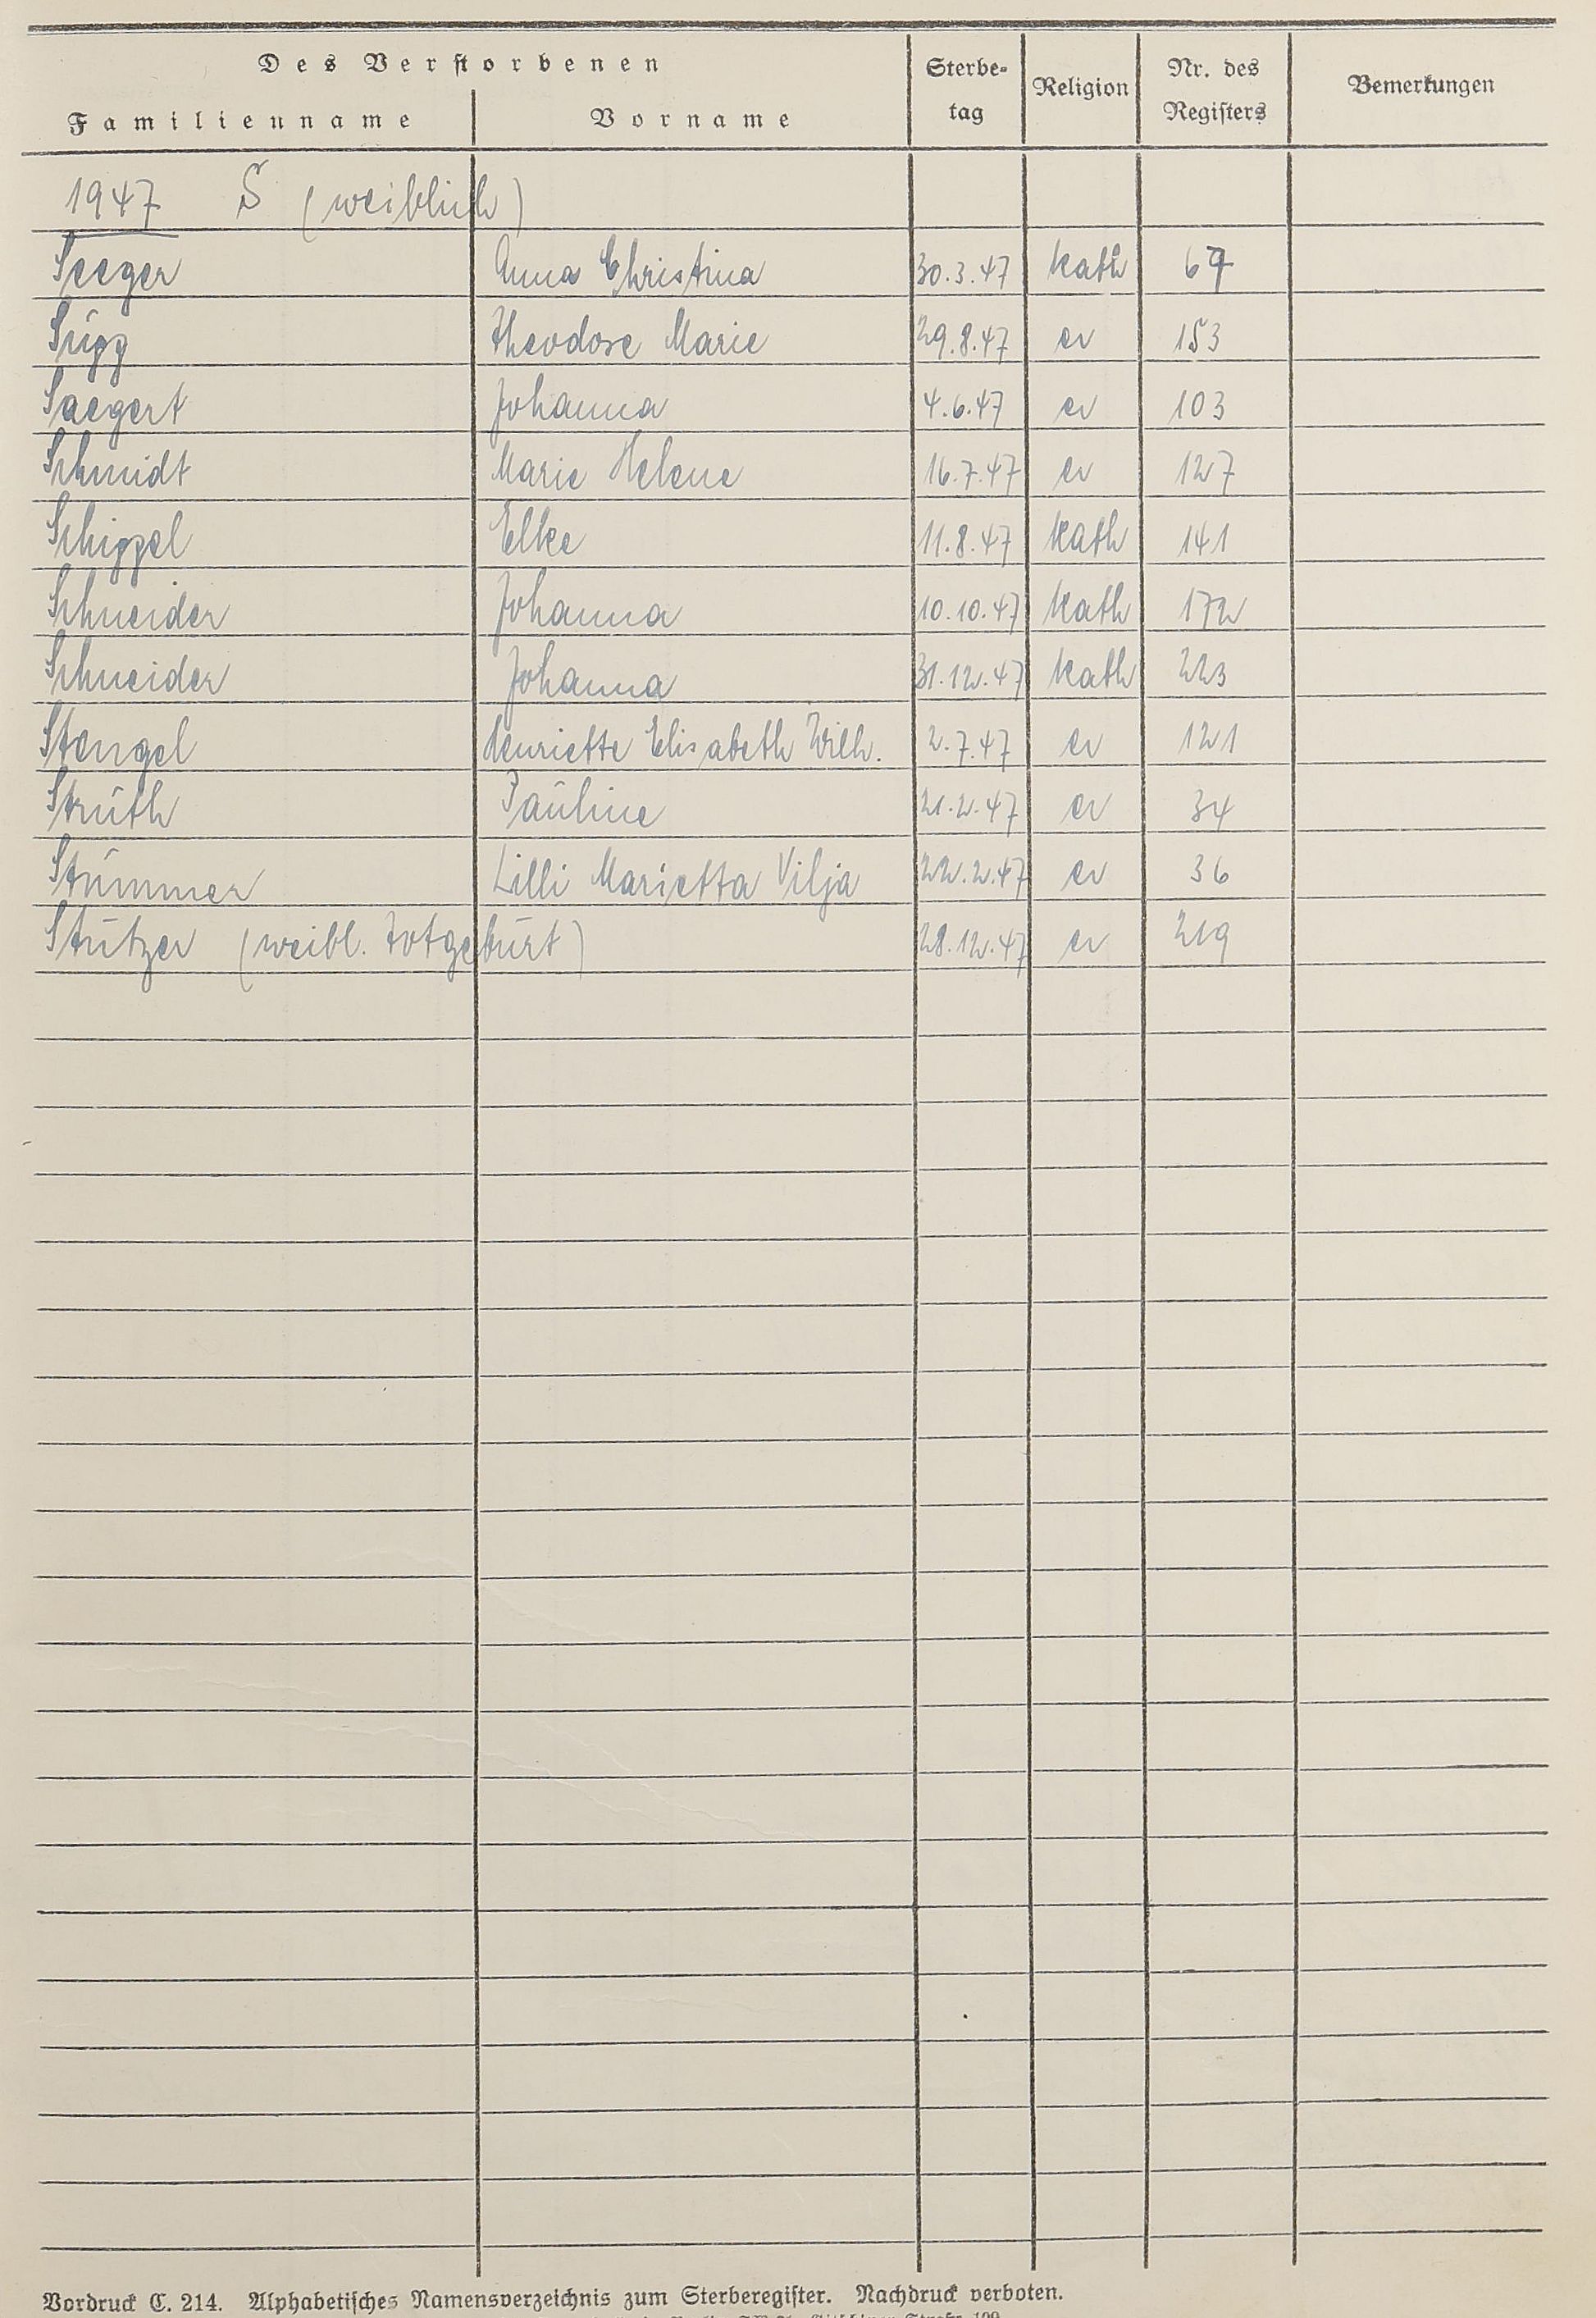 Des Verstorbenen
Familienname Vorname Sterbe-tag Religion Nr. des Registers Bemerkungen
1947 S (weiblich)
Seeger Anna Christina 30.3.47 kath
Sügg Theodore Marie 29.8.47 ev 153
Saegert Johanna 4.6.47 ev 103
Schmidt Marie Helene 16.7.47 ev 127
Schippel Elke 11.8.47 kath 141
Schneider Johanna 10.10.47 kath 172
Schneider Johanna 31.12.47 kath 223
Stengel Henriette Elisabeth Wilh. 2.7.47 ev 121
Struth Pauline 21.2.47 ev 34
Stummer Lilli Marietta Vilja 22.2.47 ev 36
Stützer (weibl. Totgeburt) 28.12.47 ev 219
Vordruck C. 214. Alphabetisches Namensverzeichnis zum Sterberegister. Nachdruck verboten.